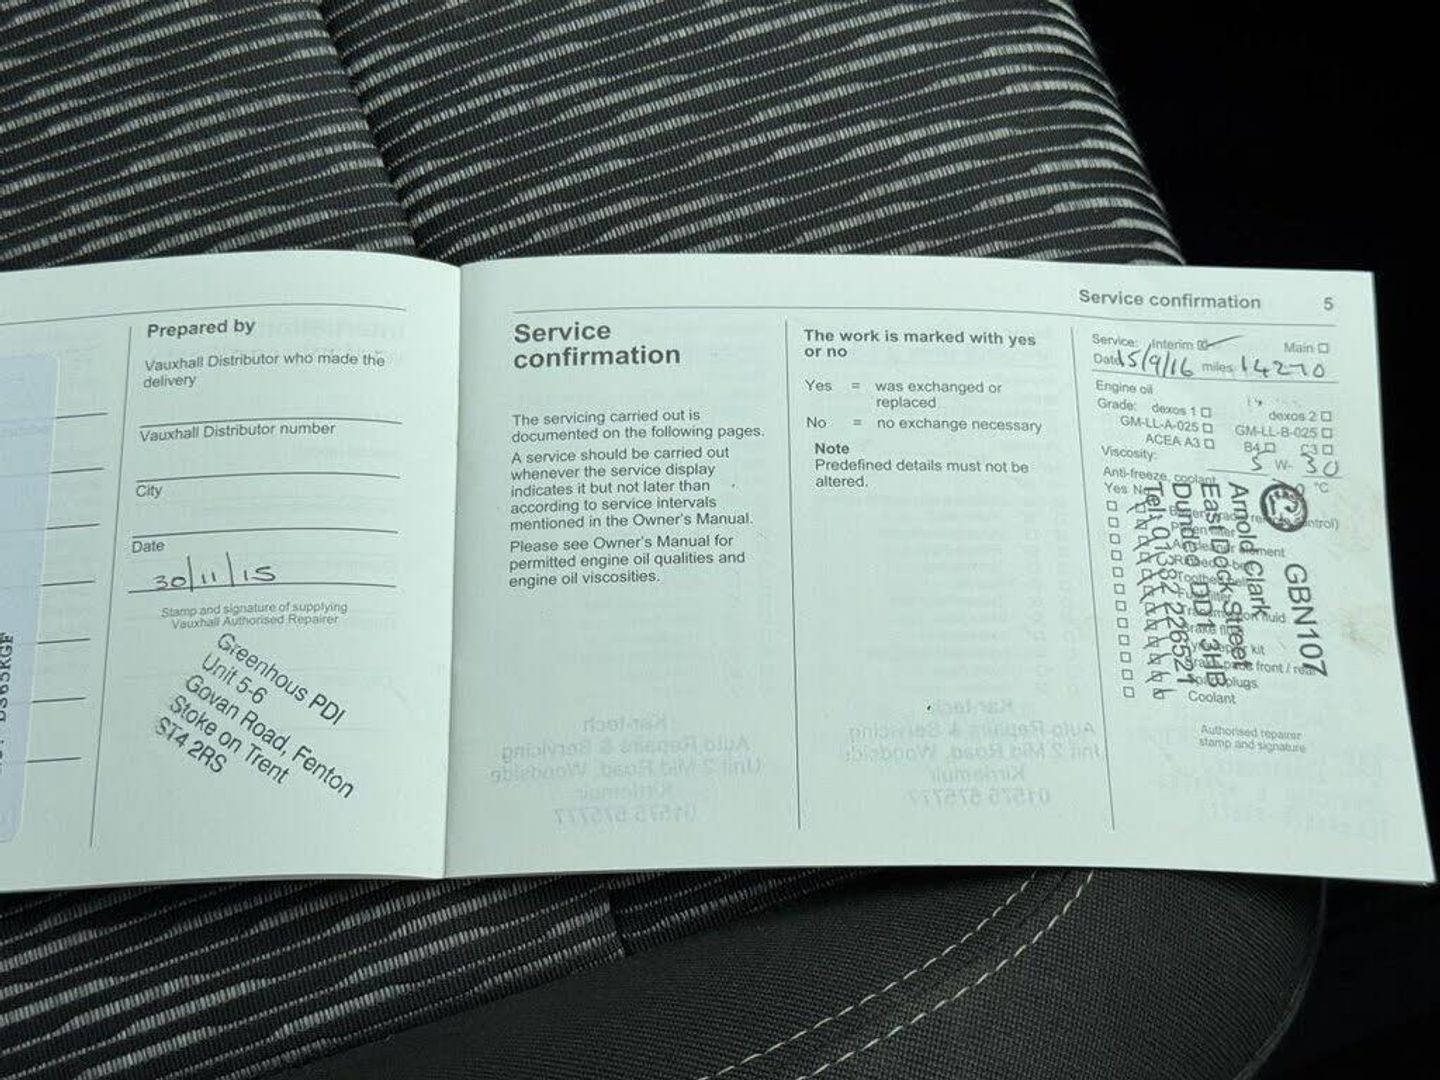 Prepared by
Vauxhall Distributor who made the
delivery
Vauxhall Distributor number
City
Date
30/11/15
Stamp and signature of supplying
Vauxhall Authorised Repairer
Greenhous PDI
Unit 5-6
Govan Road, Fenton
Stoke on Trent
ST4 2RS
Service
confirmation
The servicing carried out is
documented on the following pages.
A service should be carried out
whenever the service display
indicates it but not later than
according to service intervals
mentioned in the Owner's Manual.
Please see Owner's Manual for
permitted engine oil qualities and
engine oil viscosities.
The work is marked with yes
or no
Yes = was exchanged or
replaced
No = no exchange necessary
Note
Predefined details must not be
altered.
Service confirmation 5
Service: Interim Main
Date 15/9/16 miles 14270
Engine oil
Grade: dexos 1 dexos 2
GM-LL-A-025 GM-LL-B-025
ACEA A3 B4 C3
Viscosity: 5 W- 30
Anti-freeze, coolant °C
Yes No
Coolant
Authorised repairer
stamp and signature
GBN107
Arnold Clark
East Dock Street
Dundee DD1 3HB
Tel: 01382 226521